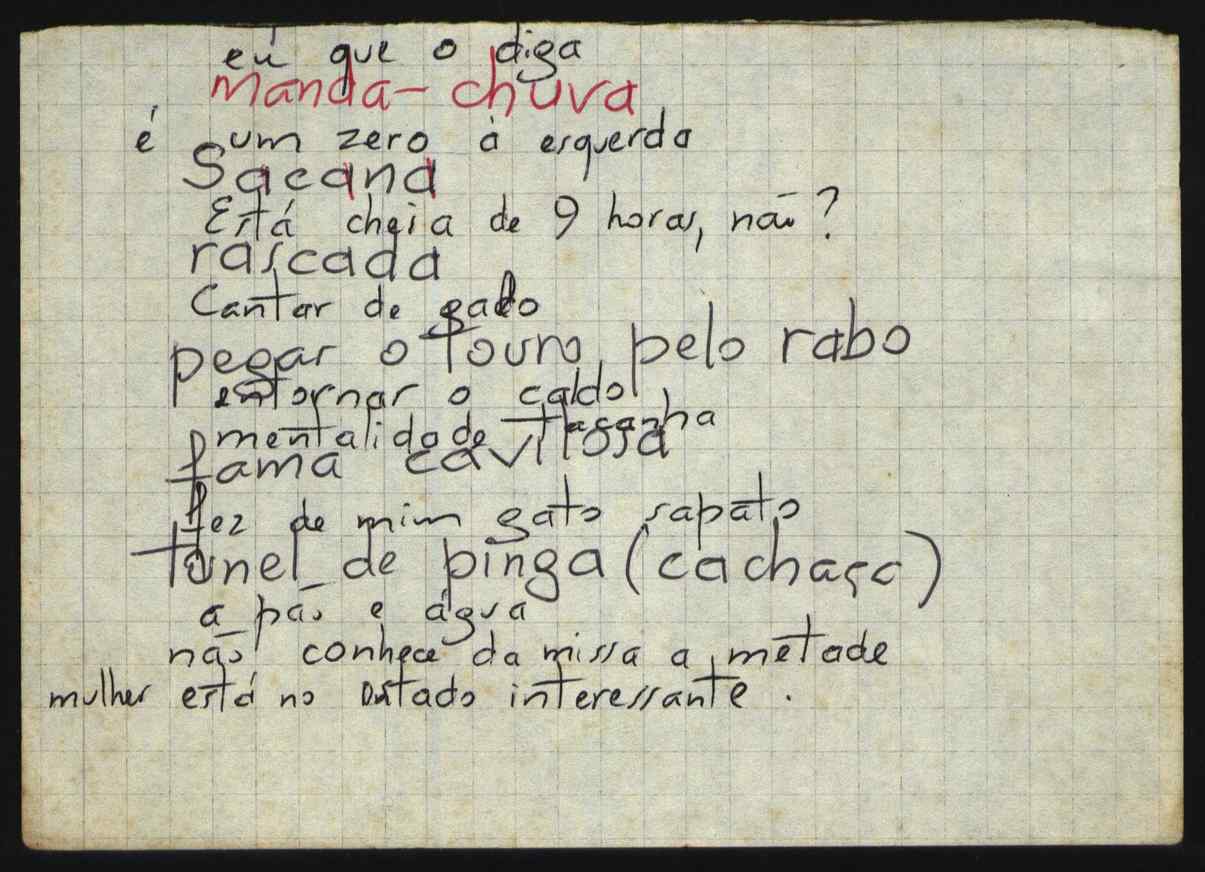 eu que o diga
manda-chuva
é um zero à esquerda
Sacana
Está cheia de 9 horas, não?
rascada
Cantar de galo
pegar o touro pelo rabo
entornar o caldo
mentalidade tacanha
fama cavilosa
fez de mim gato sapato
tonel de pinga (cachaça)
a pão e água
não conhece da missa a metade
mulher está no estado interessante.